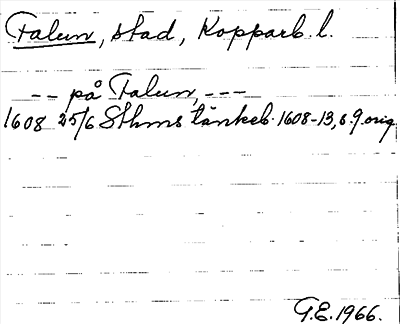 Falun, stad, Kopparb. l.
-- på Falun, ---
1608 25/6 Sthms tänkeb. 1608-13, s. 9. orig
G.E. 1966.